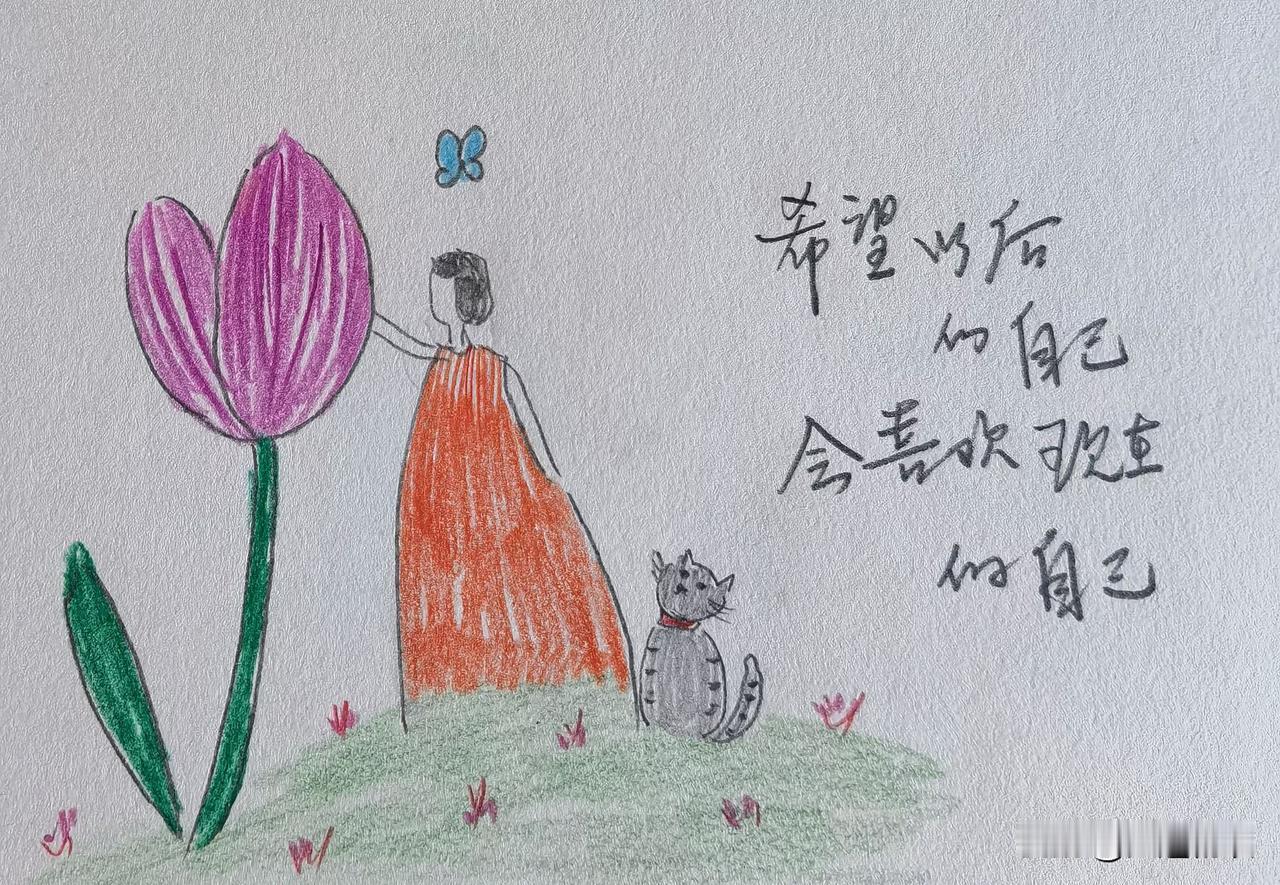 希望以后
的自己
会喜欢现在
的自己